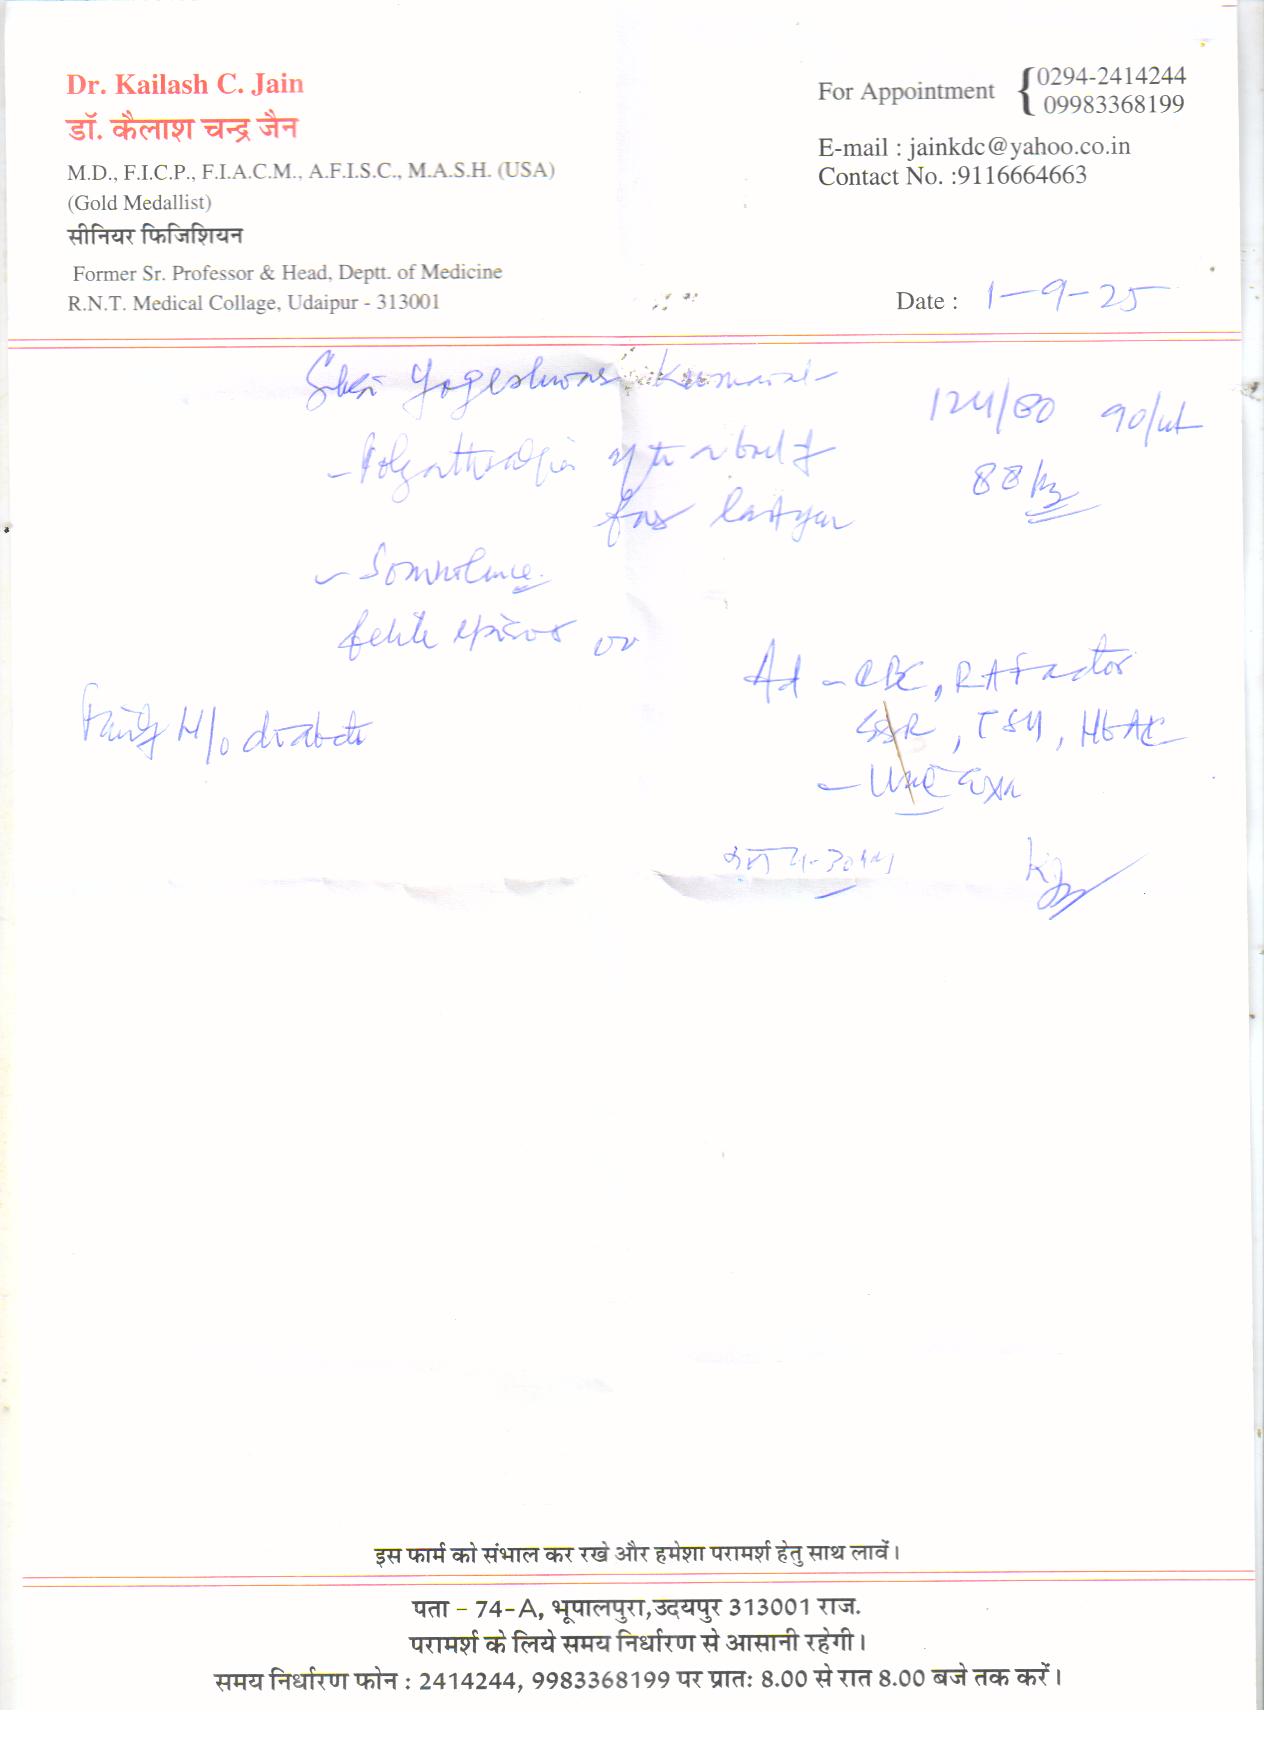 Dr. Kailash C. Jain
डॉ. कैलाश चन्द्र जैन
M.D., F.I.C.P., F.I.A.C.M., A.F.I.S.C., M.A.S.H. (USA)
(Gold Medallist)
सीनियर फिजिशियन
Former Sr. Professor & Head, Deptt. of Medicine
R.N.T. Medical Collage, Udaipur - 313001
For Appointment { 0294-2414244
09983368199
E-mail : jainkdc@yahoo.co.in
Contact No. :9116664663
Date : 1-9-25
Shri Yogeshwar Kumar
124/80 90/
- Polyarthralgia
88 kg
for last year
- Somnolence.
Family H/o diabetes
Ad - CBC, RA Factor
ESR, TSH, HbA1c
- Urine Exn
इस फार्म को संभाल कर रखे और हमेशा परामर्श हेतु साथ लावें।
पता - 74-A, भूपालपुरा,उदयपुर 313001 राज.
परामर्श के लिये समय निर्धारण से आसानी रहेगी।
समय निर्धारण फोन : 2414244, 9983368199 पर प्रातः 8.00 से रात 8.00 बजे तक करें।